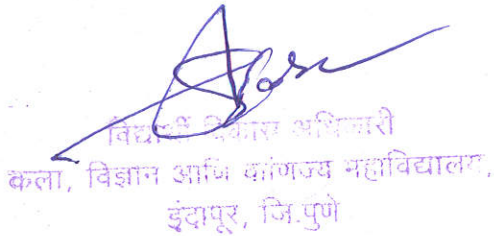 विद्यार्थी विकास अधिकारी
कला, विज्ञान आणि वाणिज्य महाविद्यालय,
इंदापूर, जि.पुणे